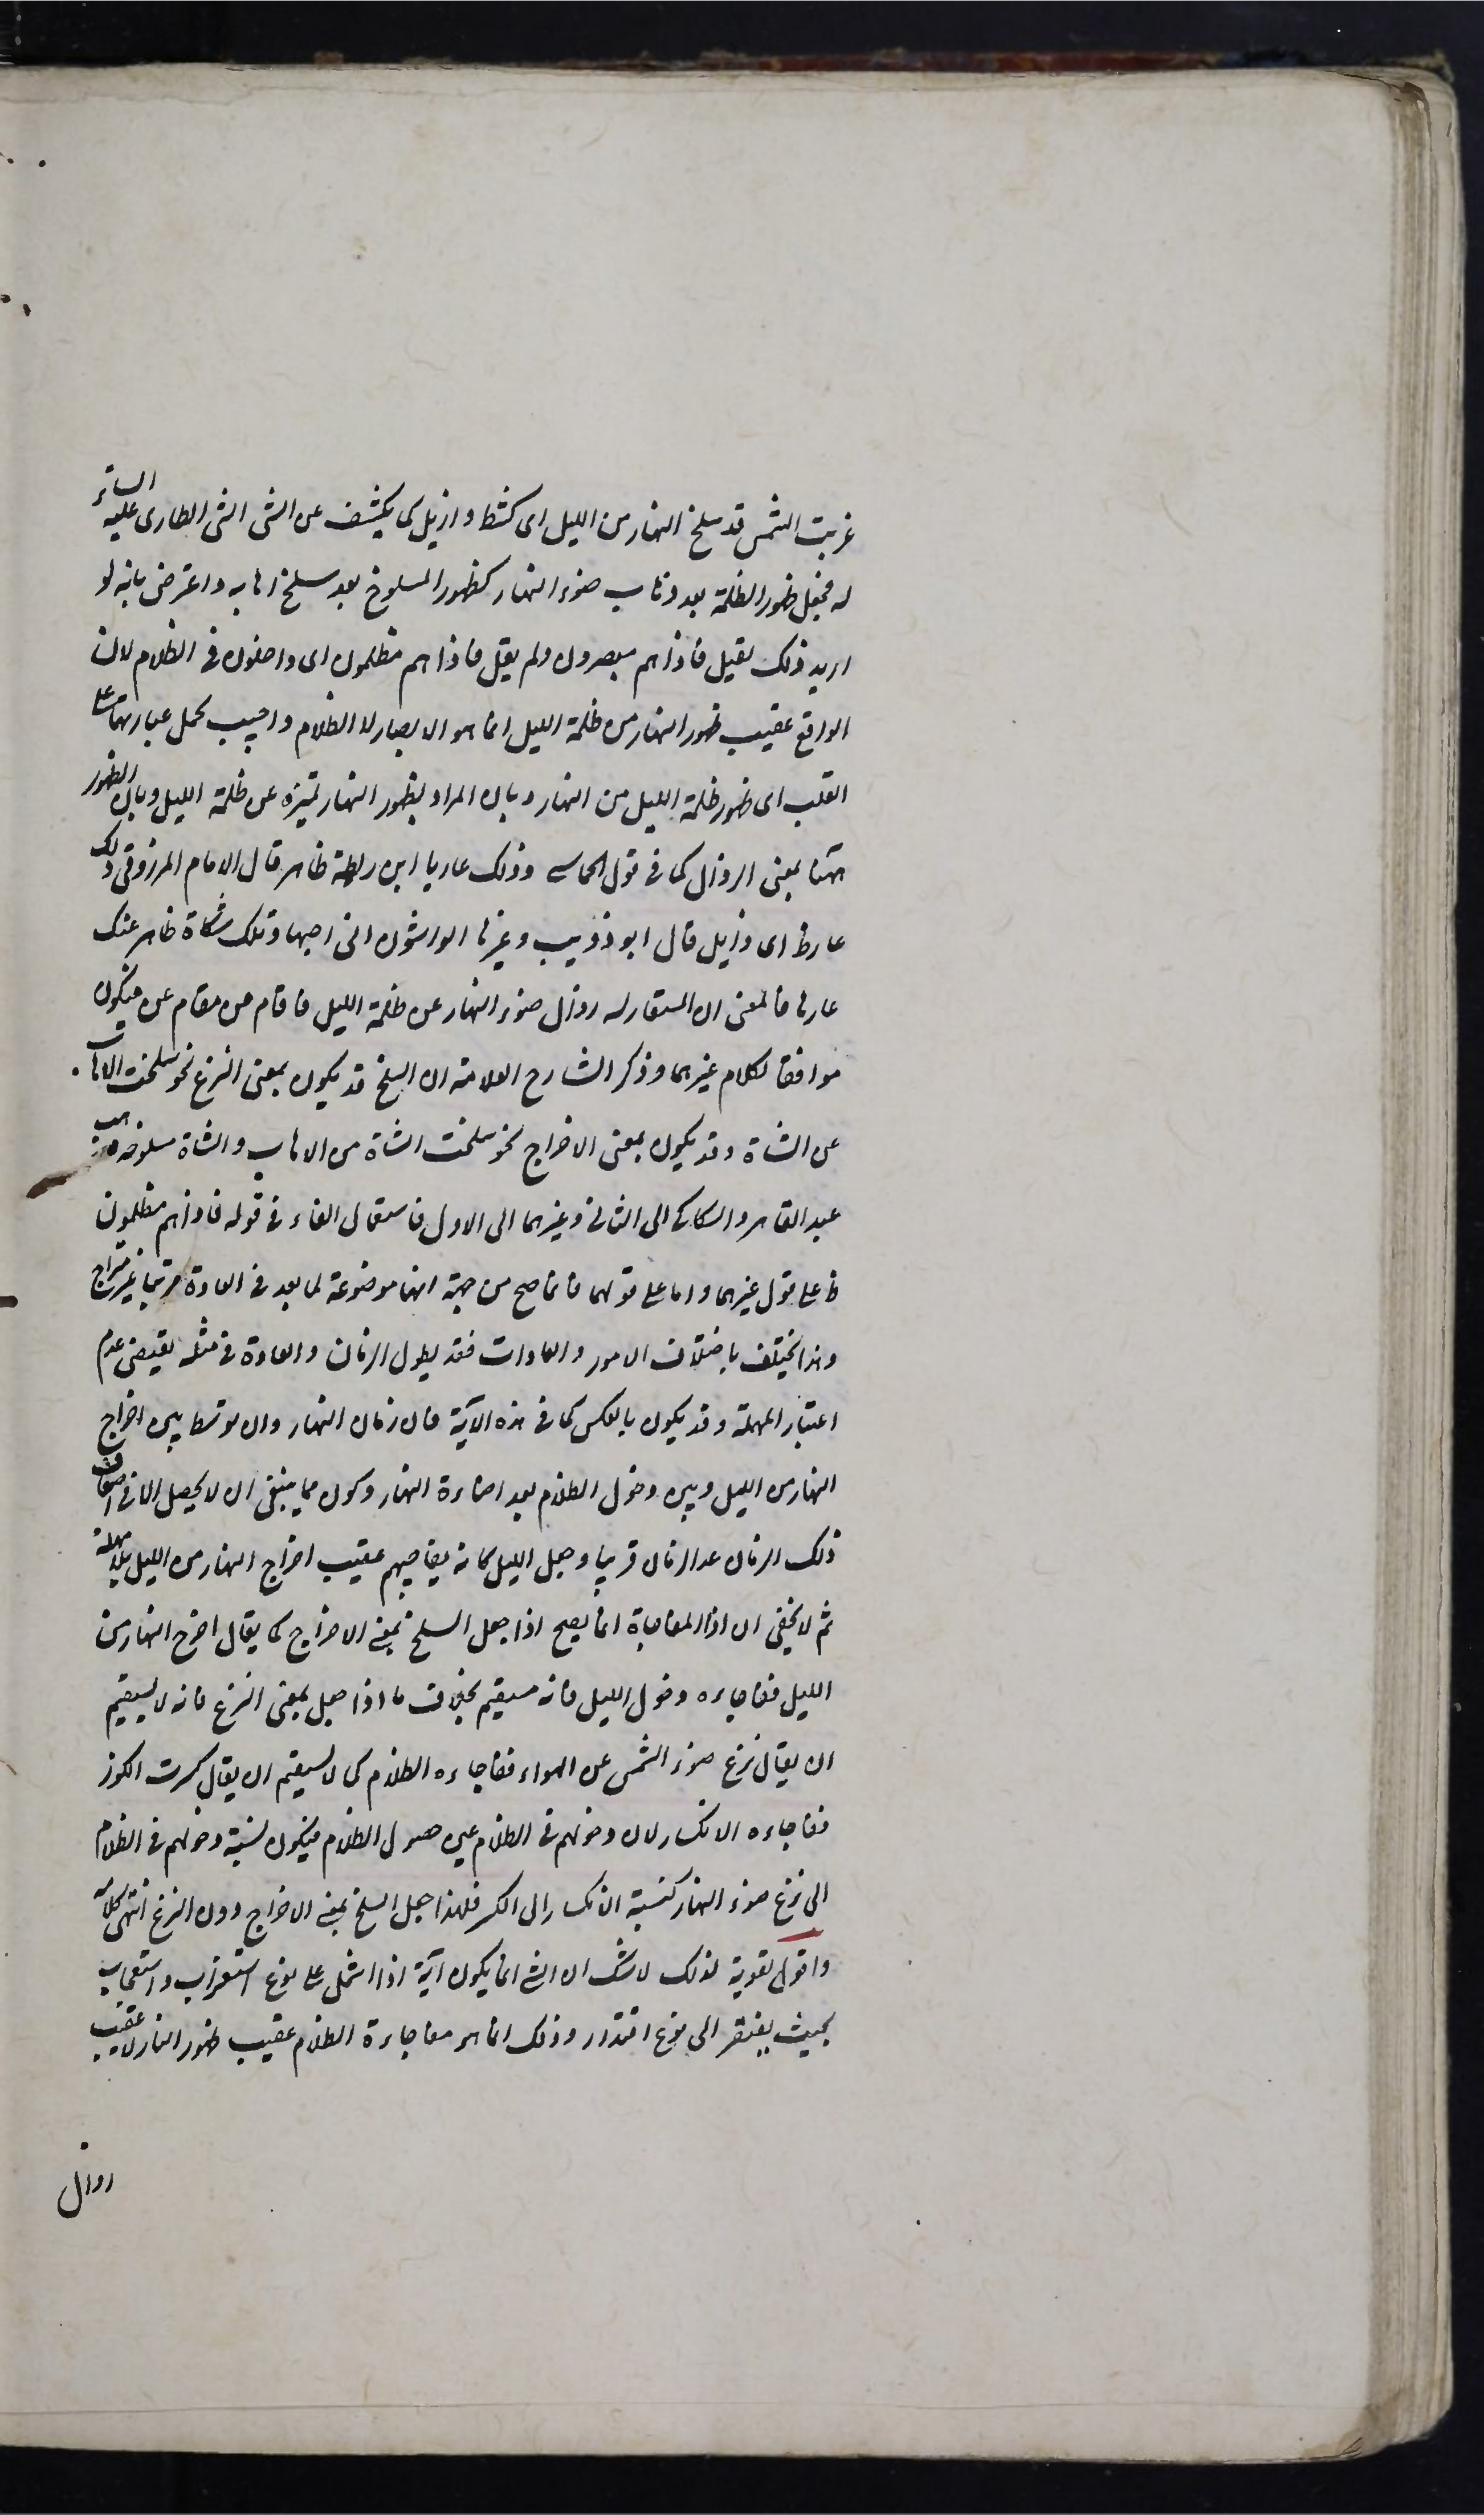 غربت الشمس قد سلخ النهار من الليل اى كشط و ازيل كما يكشف عن الشى الشى الطارى عليه الساتر
له فجعل ظهور الظلمة بعد ذهاب ضوء النهار كظهور المسلوخ بعد سلخ اهابه و اعترض بانه لو
اريد ذلك لقيل فاذا هم مبصرون ولم يقل فاذا هم مظلمون اى داخلون فى الظلام لان
الواقع عقيب ظهور النهار من ظلمة الليل انما هو الابصار لا الظلام و اجيب بحمل عبارتهما على
القلب اى ظهور ظلمة الليل من النهار و بان المراد بظهور النهار تميزه عن ظلمة الليل و بان الظهور
ههنا بمعنى الزوال كما فى قول الحماسى وذلك عار يا ابن ريطة ظاهر قال الامام المرزوقى ذلك
عار ظ اى زايل قال ابو ذؤيب وعيرها الواشون انى احبها وتلك شكاة ظاهر عنك
عارها فالمعنى ان المستعار له زوال ضوء النهار عن ظلمة الليل فاقام من مقام عن فيكون
موافقا لكلام غيرهما و ذكر الشارح العلامة ان السلخ قد يكون بمعنى النزع نحو سلخت الاهاب
عن الشاة وقد يكون بمعنى الاخراج نحو سلخت الشاة من الاهاب و الشاة مسلوخة فذهب
عبد القاهر و السكاكى الى الثانى و غيرهما الى الاول فاستعمال الفاء فى قوله فاذا هم مظلمون
ظ على قول غيرهما و اما على قولهما فانما صح من جهة انها موضوعة لما يعد فى العادة مرتبا غير متراخ
و هذا يختلف باختلاف الامور و العادات فقد يطول الزمان و العادة فى مثله يقتضى عدم
اعتبار المهلة و قد يكون بالعكس كما فى هذه الآية فان زمان النهار و ان توسط بين اخراج
النهار من الليل و بين دخول الظلام بعد اضاءة النهار و كونه مما ينبغى ان لا يحصل الا فى اضعاف
ذلك الزمان عد الزمان قريبا و جعل الليل كانه يفاجيهم عقيب اخراج النهار من الليل بلا مهلة
ثم لا يخفى ان اذا المفاجاة انما يصح اذا جعل السلخ بمعنى الاخراج كما يقال اخرج النهار من
الليل ففاجاءه دخول الليل فانه مستقيم بخلاف ما اذا جعل بمعنى النزع فانه لا يستقيم
ان يقال نزع ضوء الشمس عن الهواء ففاجاءه الظلام كما لا يستقيم ان يقال كسرت الكوز
ففاجاءه الانكسار لان دخولهم فى الظلام عين حصول الظلام فيكون نسبة دخولهم فى الظلام
الى نزع ضوء النهار كنسبة الانكسار الى الكسر فلهذا جعل السلخ بمعنى الاخراج دون النزع انتهى كلامه
و اقول تقوية لذلك لا شك ان الشى انما يكون آية اذا اشتمل على نوع استغراب و استعجاب
بحيث يفتقر الى نوع اقتدار و ذلك انما هو مفاجاءة الظلام عقيب ظهور النهار لا عقيب
زوال